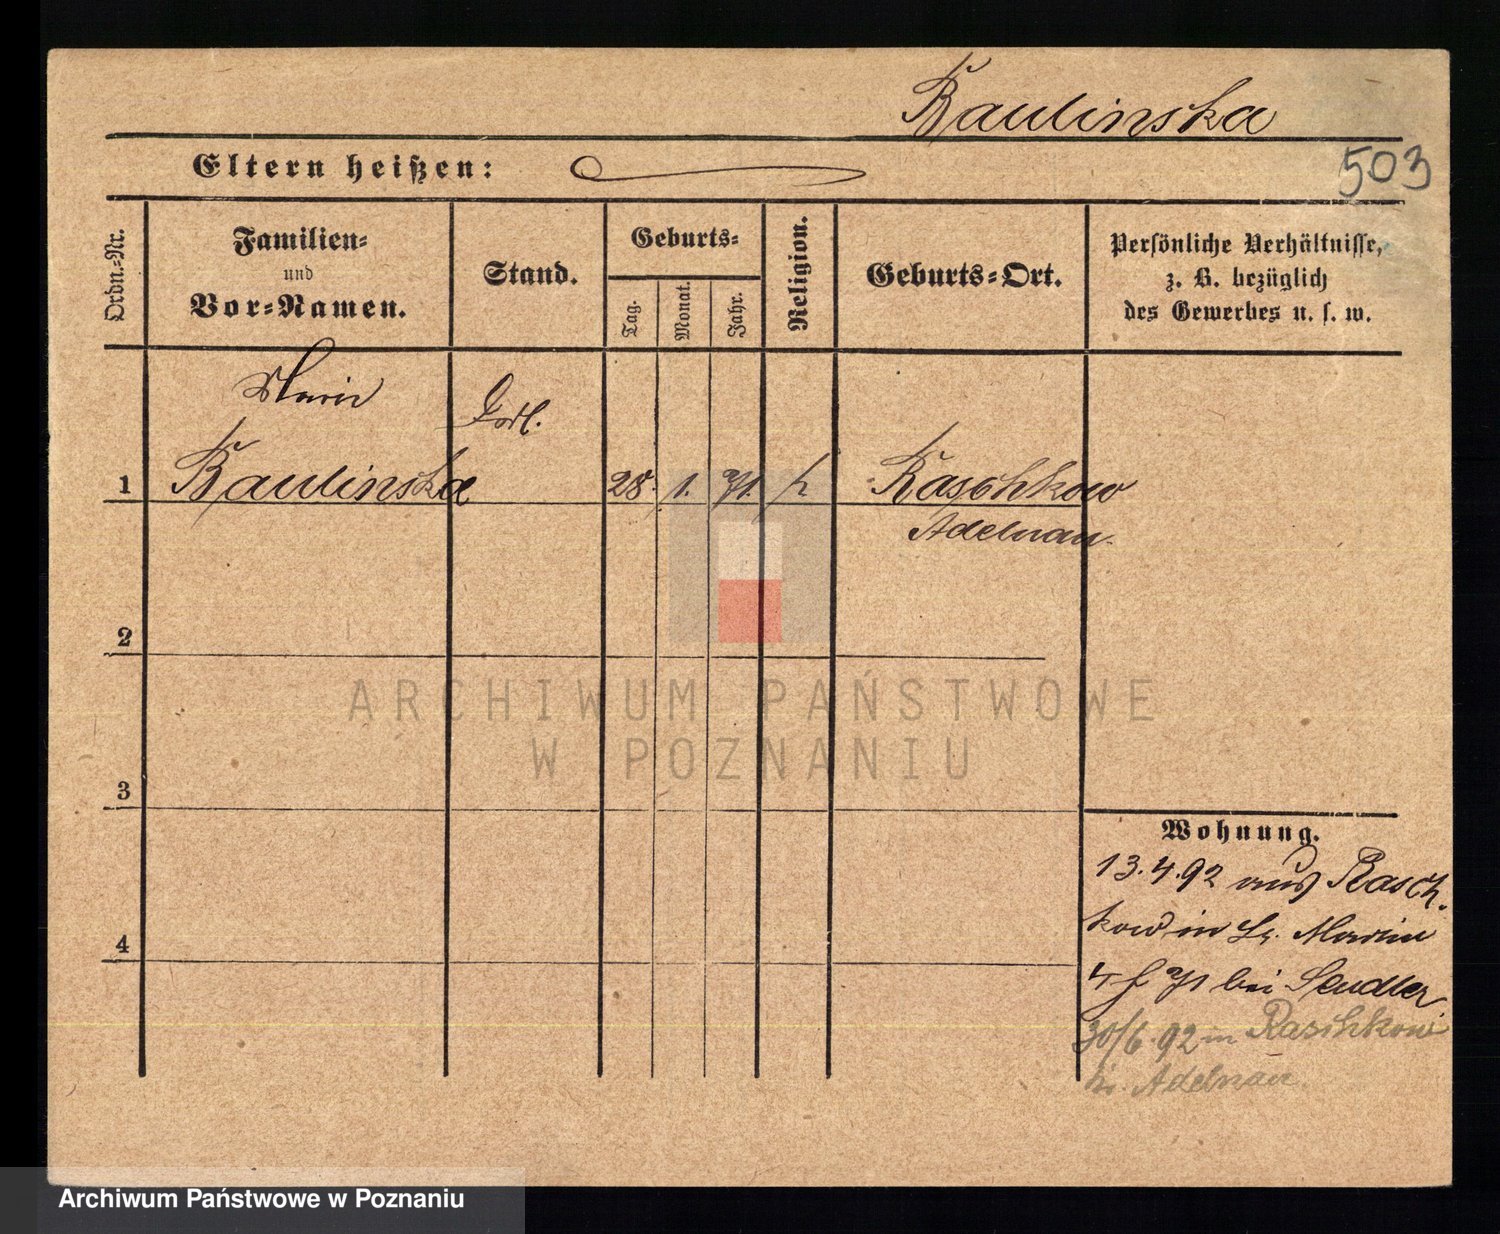 Baulinska
Eltern heißen:
503
Ordn.-Nr.
Familien-
und
Vor-Namen.
Stand.
Geburts-
Tag.
Monat.
Jahr.
Religion.
Geburts-Ort.
Persönliche Verhältnisse,
z. B. bezüglich
des Gewerbes u. s. w.
Marie
1 Baulinska 28. 1. 71. k Raschkow
Adelnau.
2
3
4
ARCHIWUM PAŃSTWOWE
W POZNANIU
Wohnung.
13.4.92 aus Rasch
kow in St. Martin
bei Sendler
30/6.92 in Raschkow
Kr. Adelnau.
Archiwum Państwowe w Poznaniu